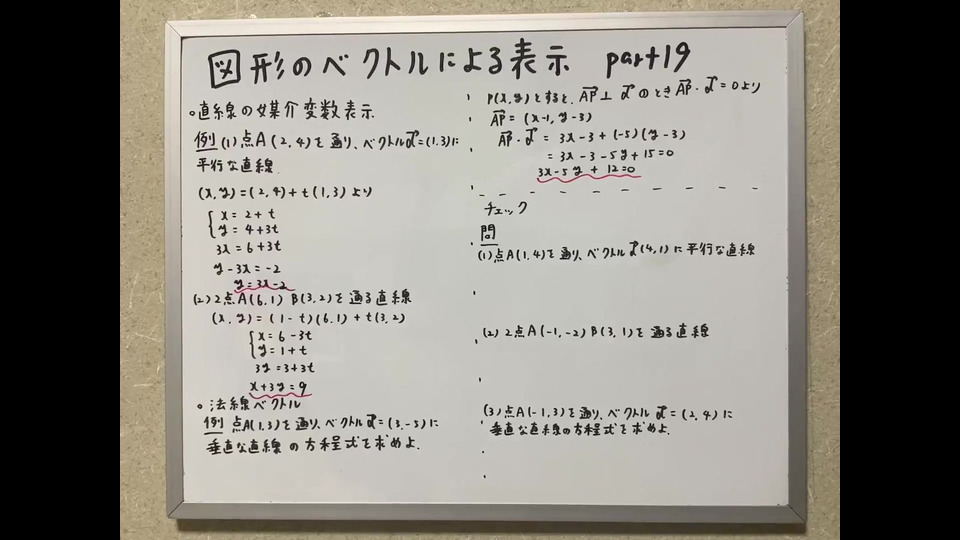 図形のベクトルによる表示 part19
○直線の媒介変数表示
例 (1) 点A(2,4)を通り、ベクトルd→=(1,3)に
平行な直線
(x,y)=(2,4)+t(1,3)より
{ x=2+t
y=4+3t
3x=6+3t
y-3x=-2
y=3x-2
(2) 2点A(6,1) B(3,2)を通る直線
(x,y)=(1-t)(6,1)+t(3,2)
{ x=6-3t
y=1+t
3y=3+3t
x+3y=9
○ 法線ベクトル
例 点A(1,3)を通り、ベクトルd→=(3,-5)に
垂直な直線の方程式を求めよ.
P(x,y)とすると、AP→⊥d→のときAP→・d→=0より
AP→=(x-1,y-3)
AP→・d→=3x-3+(-5)(y-3)
=3x-3-5y+15=0
3x-5y+12=0
チェック
問
(1) 点A(1,4)を通り、ベクトルd→(4,1)に平行な直線
(2) 2点A(-1,-2) B(3,1)を通る直線
(3) 点A(-1,3)を通り、ベクトルd→=(2,4)に
垂直な直線の方程式を求めよ.